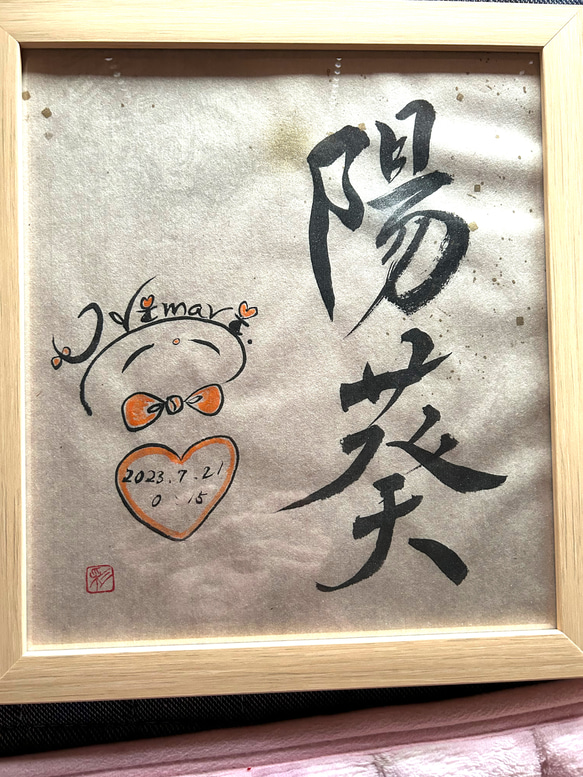 陽葵
Himari
2023.7.21
0:15
彩